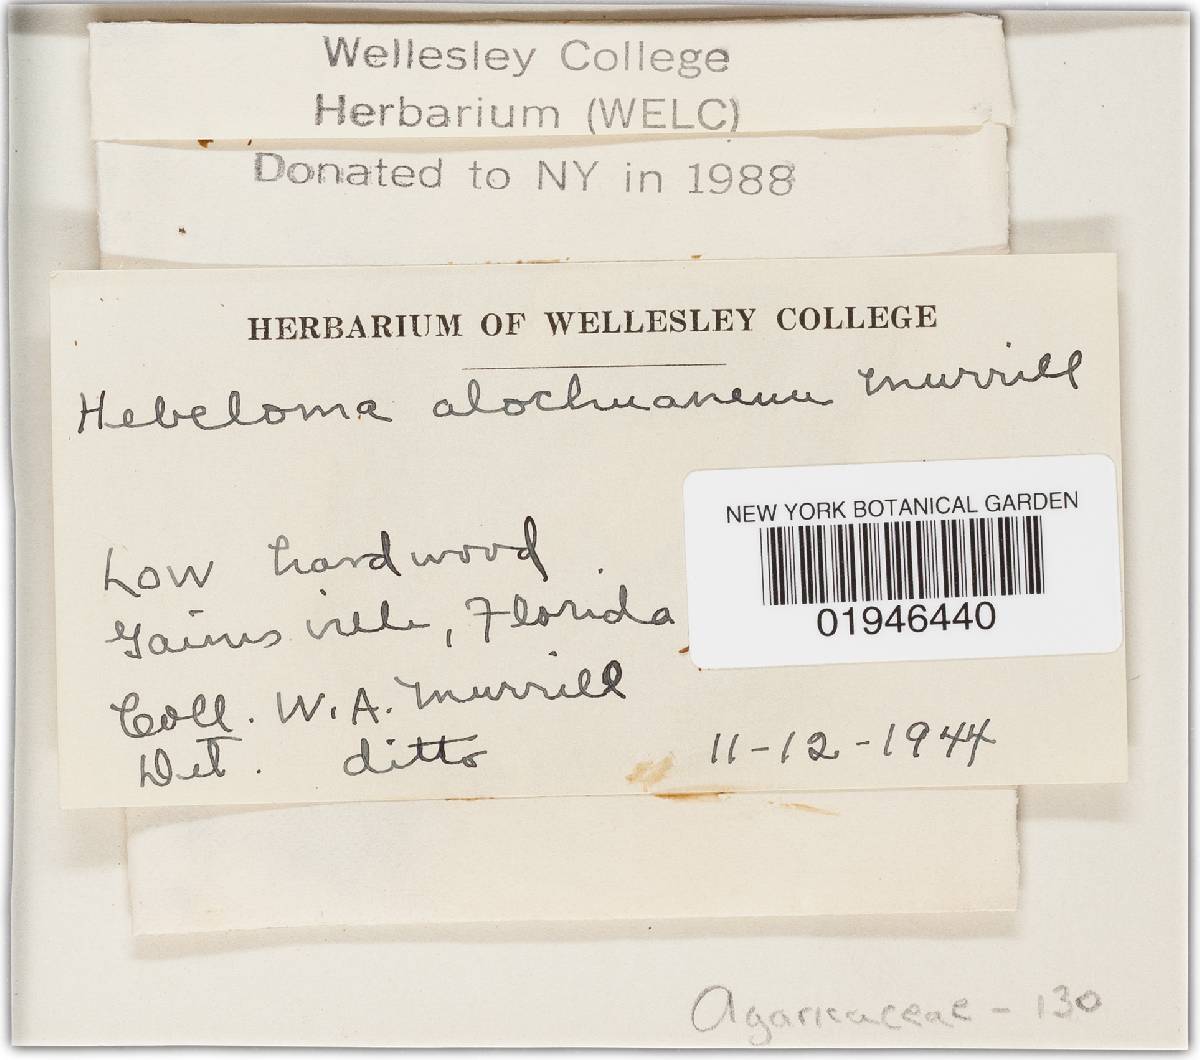 Wellesley College
Herbarium (WELC)
Donated to NY in 1988
HERBARIUM OF WELLESLEY COLLEGE
Hebeloma alochuanum Murrill
NEW YORK BOTANICAL GARDEN
01946440
Low hardwood
Gainsville, Florida
Coll. W. A. Murrill
Det. ditto 11-12-1944
Agaricaceae - 130